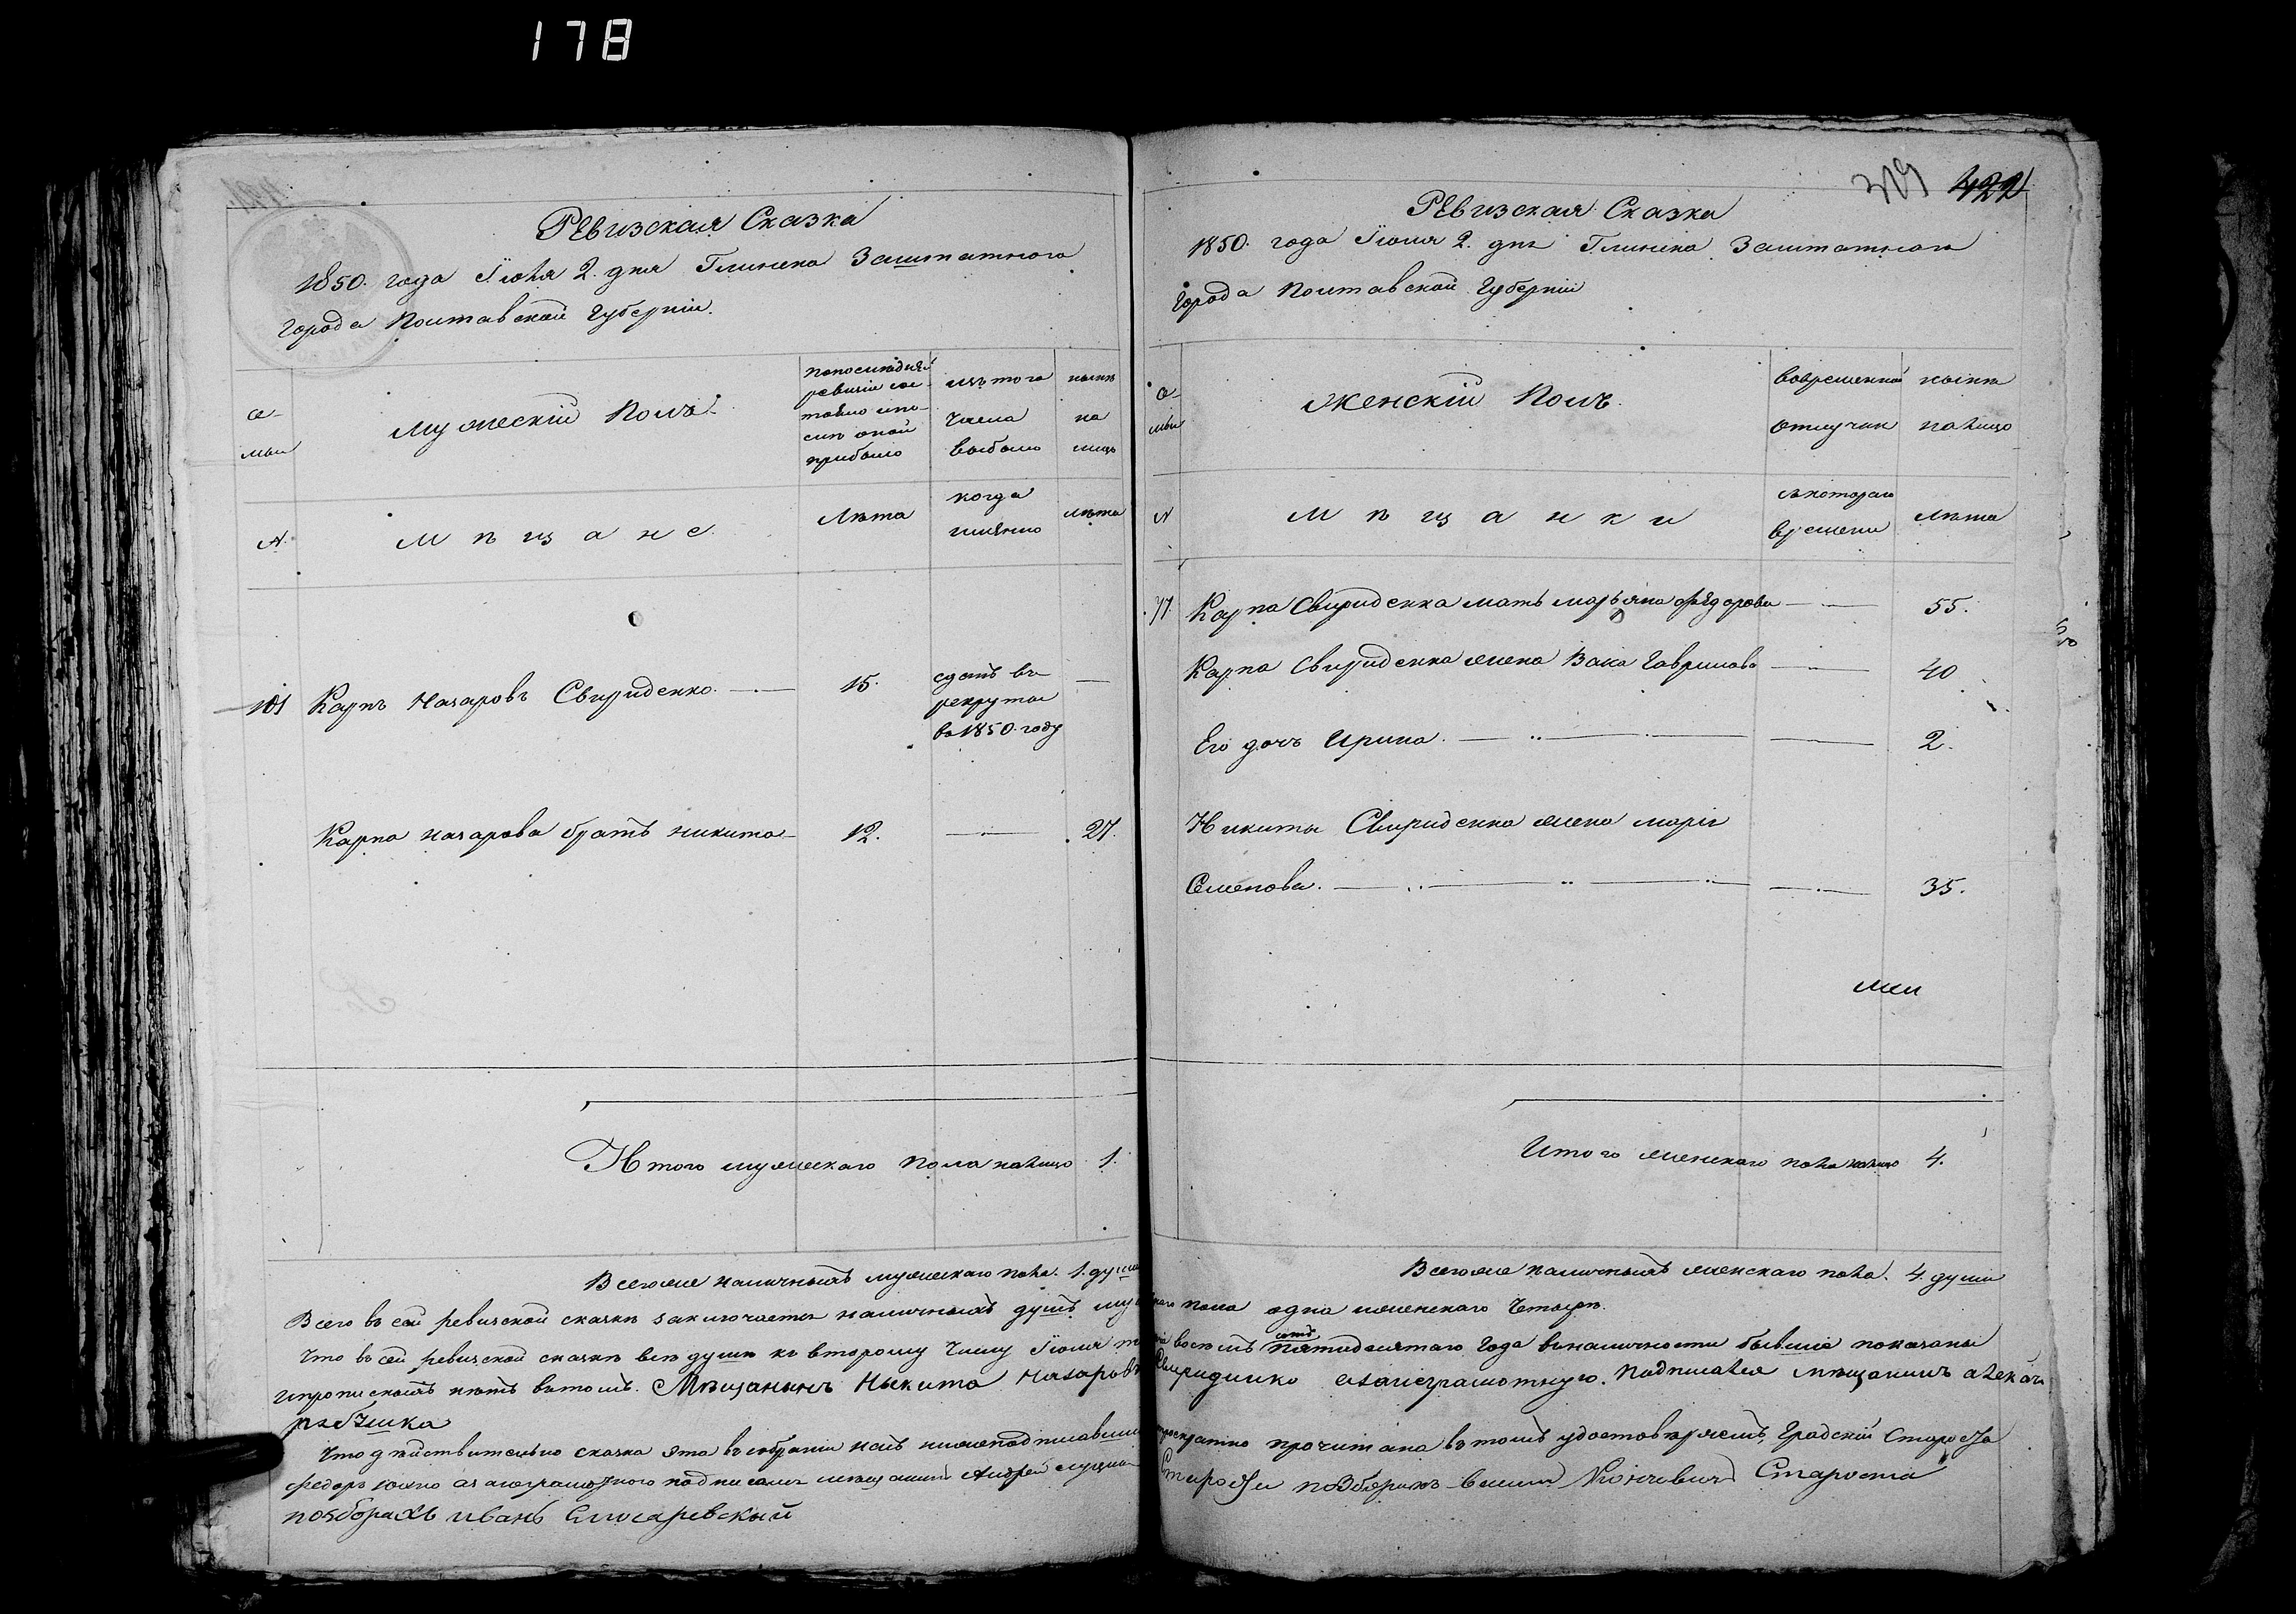 178
Ревизская Сказка
1850. года Іюня 2. дня Глинска Заштатного
Города Полтавской Губерніи.
се-
мьи
Мужескій Полъ.
по последней
ревизіи сос-
тояло и по-
слѣ оной
прибыло
изъ того
числа
выбыло
нынѣ
на
лицо
№.
Мѣщане.
Лѣта
когда
именно
Лѣта
101 Карпъ Назаровъ Свириденко. 15. сданъ въ
рекруты
въ 1850. году
Карпа Назарова братъ Никита 12. 27.
Итого мужескаго пола налицо 1.
Всего же наличныхъ мужескаго пола. 1. душа
309 422
Ревизская Сказка
1850. года Іюня 2. дня Глинска Заштатного
Города Полтавской Губерніи
се-
мьи
Женскій Полъ.
во временной
отлучки
нынѣ
налицо
№
Мѣщанки
съ котораго
времени
Лѣта
Карпа Свириденка мать Марьяна Федорова 55.
Карпа Свириденка жена Гаврилова 40
Его дочь Ирина. 2.
Никиты Свириденка жена Марія
Семенова. 35.
Итого женскаго пола налицо 4.
Всего же наличныхъ женскаго пола. 4. души
Всего въ сей ревизской сказкѣ заключается наличныхъ душъ пола одна и женскаго четыре.
Что въ сей ревизской сказкѣ всѣ души къ второму числу Іюня восемь сотъ пятидесятаго Года въ наличности бывшіе показаны
и прописныхъ нѣтъ въ томъ. Мѣщанинъ Никита Назаровъ Свириденко а за неграмотнаго. Подписался мѣщанинъ
Что действительно сказка эта въ собраніи прочитана въ томъ удостовѣряемъ, Градскій Староста
Федоръ а за неграмотного подписалъ мѣщанинъ Андрей Староста
Иванъ Слюсаревскый